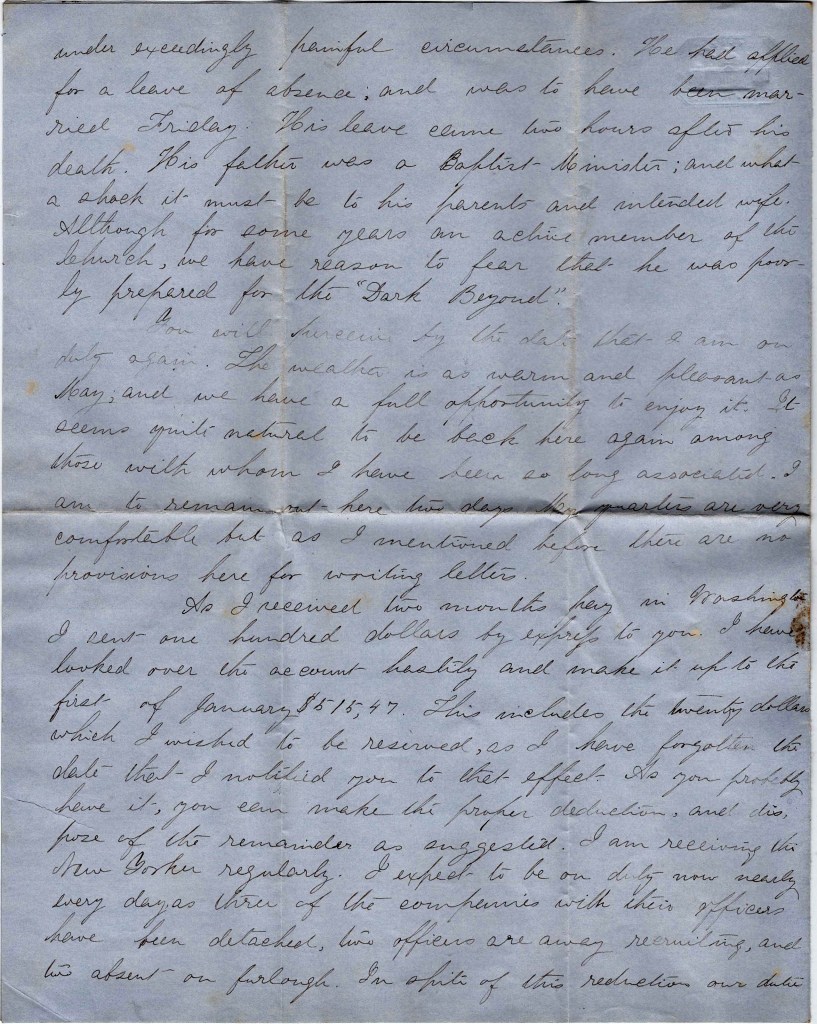 under exceedingly painful circumstances. He had applied
for a leave of absence; and was to have been mar-
ried Friday. His leave came two hours after his
death. His father was a Baptist Minister; and what
a shock it must be to his parents and intended wife.
Although for some years an active member of the
Church, we have reason to fear that he was poor-
ly prepared for the "Dark Beyond".
You will perceive by the date that I am on
duty again. The weather is as warm and pleasant as
May; and we have a full opportunity to enjoy it. It
seems quite natural to be back here again among
those with whom I have been so long associated. I
am to remain out here two days. My quarters are very
comfortable but as I mentioned before there are no
provisions here for writing letters.
As I received two months pay in Washington
I sent one hundred dollars by express to you. I have
looked over the account hastily and make it up to the
first of January $515,47. This includes the twenty dollars
which I wished to be reserved, as I have forgotten the
date that I notified you to that effect. As you probably
have it, you can make the proper deduction, and dis,
pose of the remainder as suggested. I am receiving the
New Yorker regularly. I expect to be on duty now nearly
every day as three of the companies with their officers
have been detached, two officers are away recruiting, and
two absent on furlough. In spite of this reduction our dutie